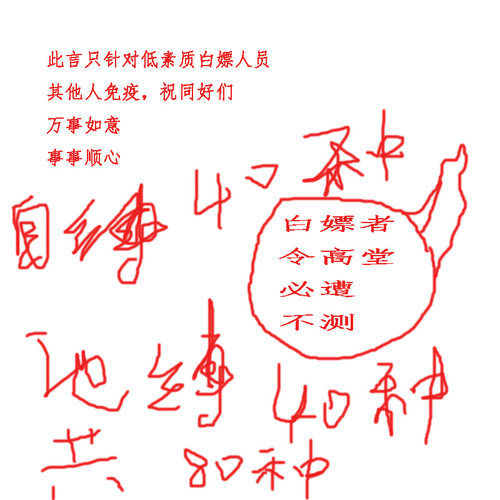 此言只针对低素质白嫖人员
其他人免疫，祝同好们
万事如意
事事顺心
自缚40种
白嫖者
令高堂
必遭
不测
地缚40种
共80种